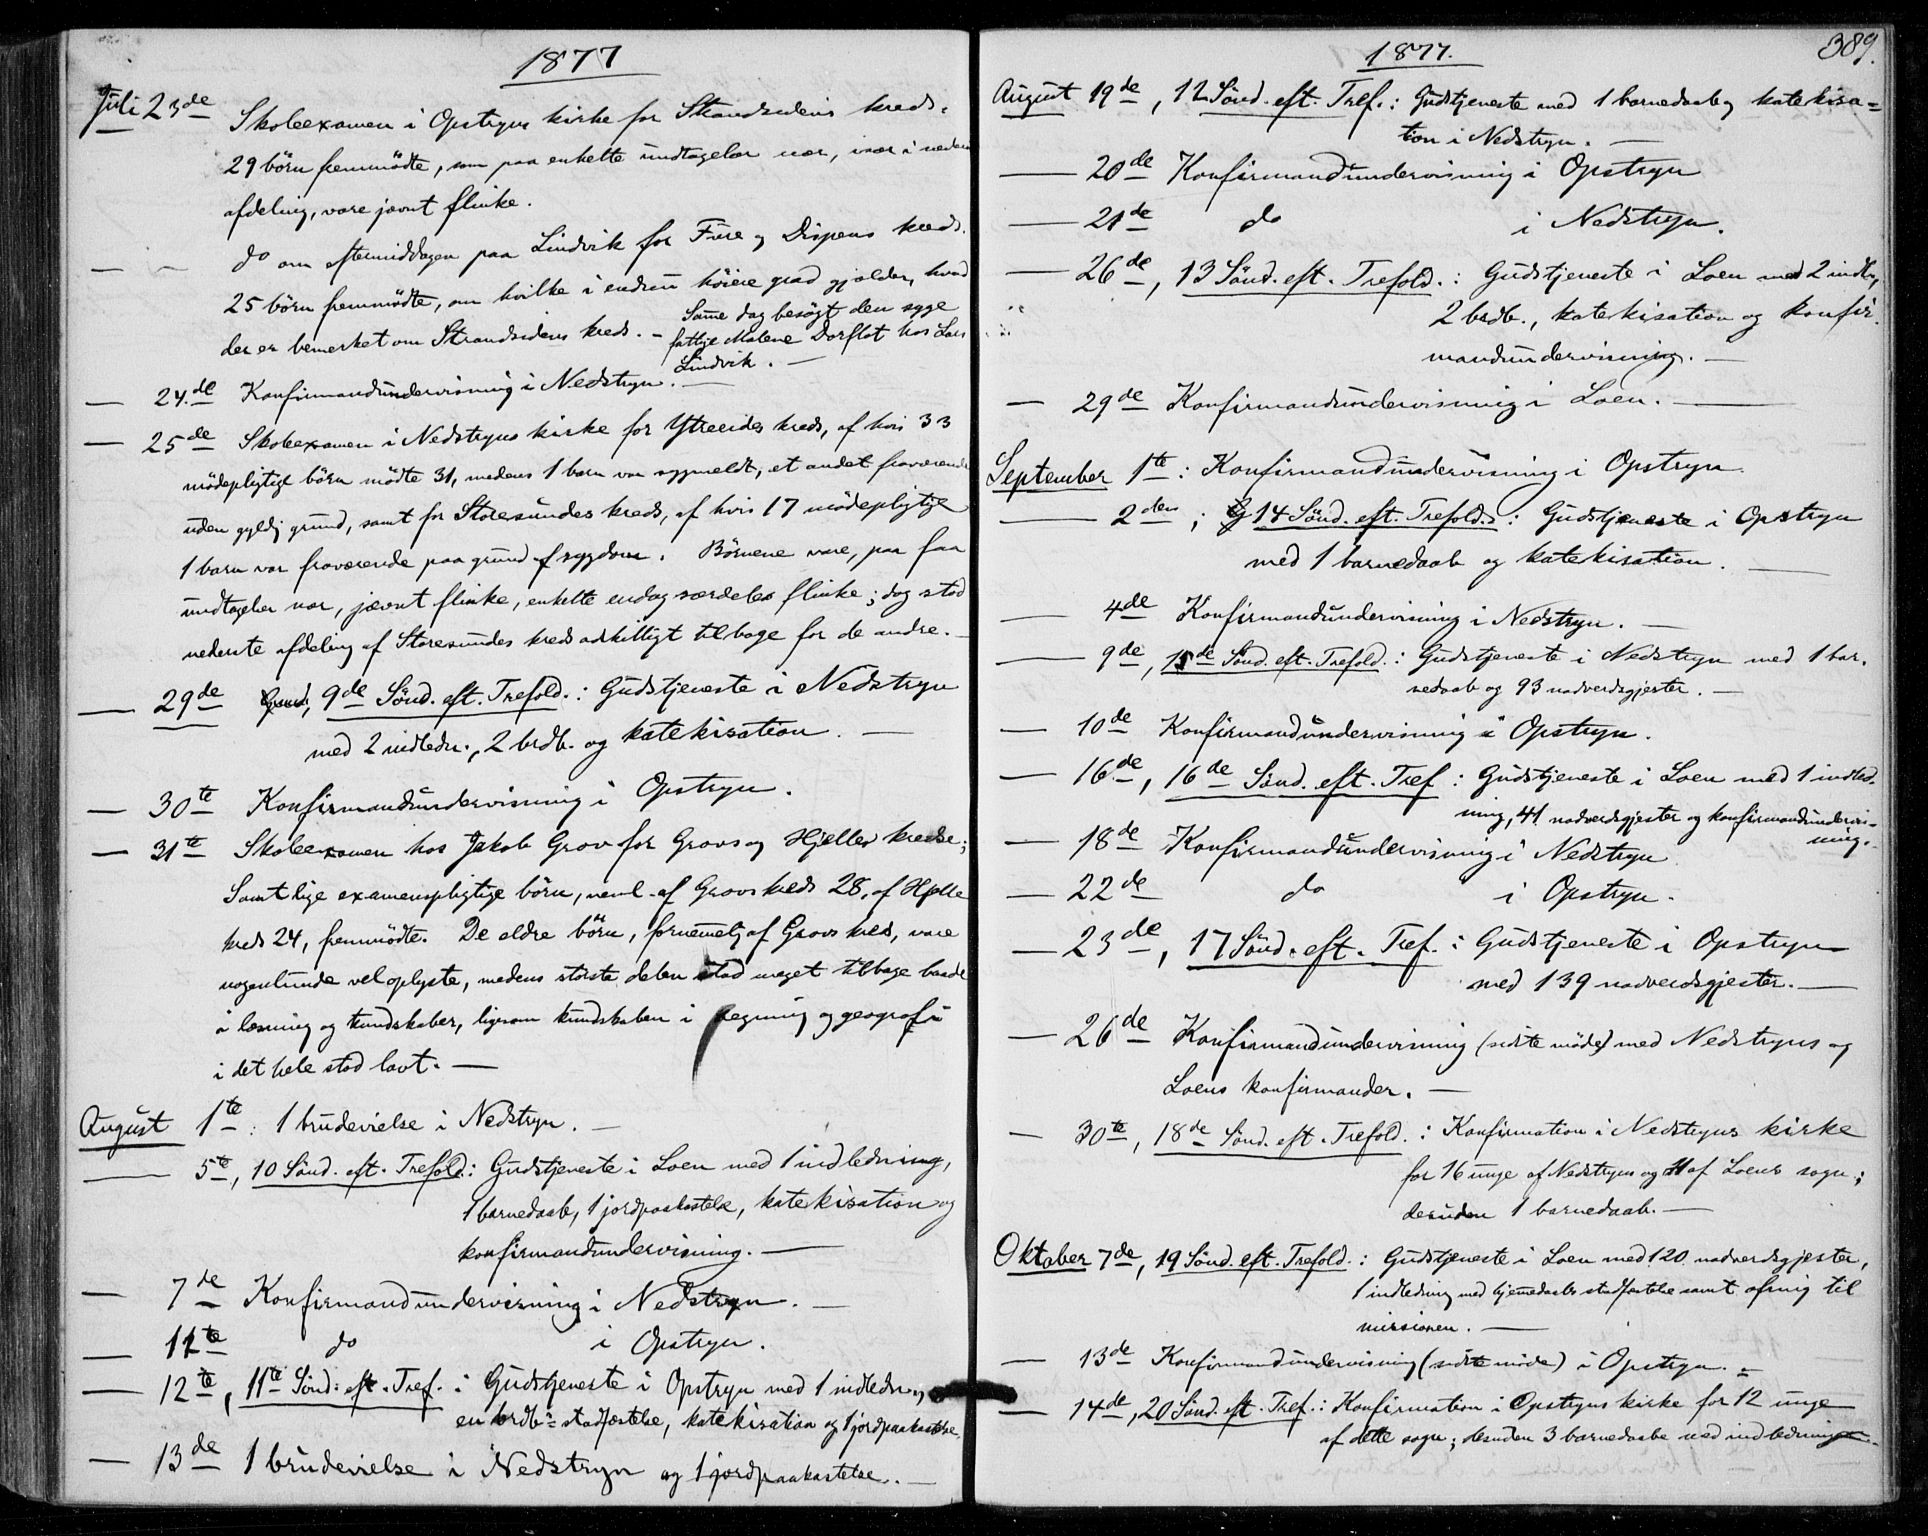 1877
Juli 23de Skoleexamen i Opstryns kirke for Strandsidens kreds.
29 börn fremmödte, som paa enkelte undtagelser nær, især i nederste
afdeling, vare jævnt flinke.
— — do om eftermiddagen paa Lindvik for Flore og Dispens kreds.
25 börn fremmödte, om hvilke i endnu höiere grad gjælder, hvad
der er bemerket om Strandsidens kreds. – Samme dag besögt den syge
fattige Malene Dorflot hos Lars
Lindvik. —
— 24.de Konfirmandundervisning i Nedstryn. —
— 25de Skoleexamen i Nedstryns kirke for Ytreeides kreds, af hvis 33
mödepligtige börn mödte 31, medens 1 barn var sygmeldt, et andet fraværende
uden gyldig grund, samt for Storesundes kreds, af hvis 17 mödepligtige
1 barn var fraværende paa grund af sygdom. Börnene vare, paa faa
undtagelser nær, jævnt flinke, enkelte endog særdeles flinke; dog stod
nederste afdeling af Storesundes kreds adskilligt tilbage for de andre. —
— 29de 9de Sönd. eft. Trefold.: Gudstjeneste i Nedstryn
med 2 indledn., 2 brdb. og katekisation. —
— 30te Konfirmandundervisning i Opstryn.
— 31te Skoleexamen hos Jakob Grov for Grovs og Hjelles kredse;
Samtlige examenspligtige börn, neml. af Grovs kreds 28, af Hjelle
kreds 24, fremmödte. De ældre börn, fornemmelig af Grovs kreds, vare
nogenlunde vel oplyste, medens störste delen stod meget tilbage baade
i læsning og kundskaber, ligesom kundskaben i regning og geografi
i det hele stod lavt. —
August 1te: 1 brudevielse i Nedstryn. —
— 5te, 10 Sönd. eft. Trefold.: Gudstjeneste i Loen med 1 indledning,
1 barnedaab, 1 jordpaakastelse, katekisation og
konfirmandundervisning. —
— 7de Konfirmandundervisning i Nedstryn. —
— 11te do i Opstryn.
— 12te, 11te Sönd. eft. Tref.: Gudstjeneste i Opstryn med 1 indledn.,
en brdb.s stadfæstelse, katekisation og 1 jordpaakastelse.
— 13de 1 brudevielse i Nedstryn og 1 jordpaakastelse. —
1877.
389.
August 19de, 12 Sönd. eft. Tref.: Gudstjeneste med 1 barnedaab og katekisa=
tion i Nedstryn. —
— 20de Konfirmandundervisning i Opstryn
— 21de do i Nedstryn.
— 26de, 13 Sönd. eft. Trefold.: Gudstjeneste i Loen med 2 indl.,
2 brdb., katekisation og konfir-
mandundervisning. —
— 29de Konfirmandundervisning i Loen. —
September 1te: Konfirmandundervisning i Opstryn.
— 2den; 14 Sönd. eft. Trefold.: Gudstjeneste i Opstryn
med 1 barnedaab og katekisation. —
— 4de Konfirmandundervisning i Nedstryn. —
— 9de, 15de Sönd. eft. Trefold.: Gudstjeneste i Nedstryn med 1 bar-
nedaab og 93 nadverdsgjester. —
— 10de Konfirmandundervisning i Opstryn.
— 16de, 16de Sönd. eft. Tref.: Gudstjeneste i Loen med 1 indled-
ning, 41 nadverdsgjester og konfirmandundervis-
ning. —
— 18de Konfirmandundervisning i Nedstryn
— 22de do i Opstryn.
— 23de, 17 Sönd. eft. Tref.: Gudstjeneste i Opstryn
med 139 nadverdsgjester. —
— 26de Konfirmandundervisning (sidste möde) med Nedstryns og
Loens konfirmander. —
— 30te, 18de Sönd. eft. Trefold.: Konfirmation i Nedstryns kirke
for 16 unge af Nedstryns og 11 af Loens sogn;
desuden 1 barnedaab. —
Oktober 7de, 19 Sönd. eft. Trefold.: Gudstjeneste i Loen med 120 nadverdsgjester,
1 indledning med hjemmedaabs stadfæstelse samt ofring til
missionen. —
— 13de Konfirmandundervisning (sidste möde) i Opstryn. =
— 14de, 20 Sönd. eft. Tref.: Konfirmation i Opstryns kirke for 12 unge
af dette sogn; desuden 3 barnedaabe med indledninger.